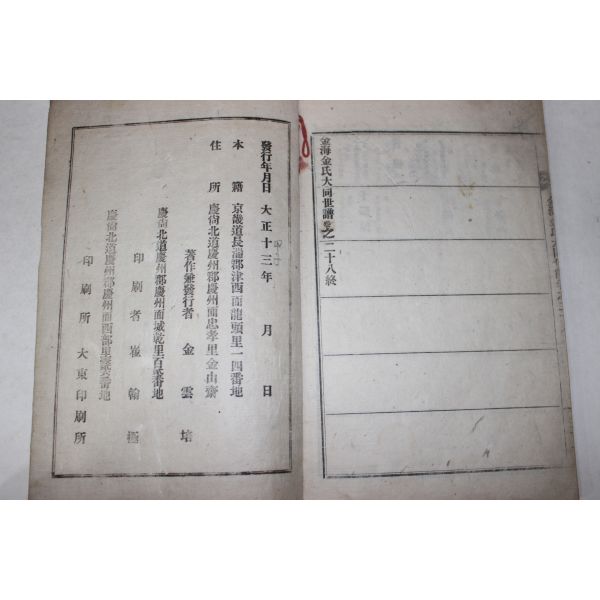 金海金氏大同世譜卷之二十八終
發行年月日 大正十三年 月 日
本籍 京畿道長湍郡津西面龍頭里一四番地
住所 慶尙北道慶州郡慶州面忠孝里金山齋
著作兼發行者 金雲培
慶尙北道慶州郡慶州面城乾里石番地
印刷者 崔翰
慶尙北道慶州郡慶州面西部里番地
印刷所 大東印刷所